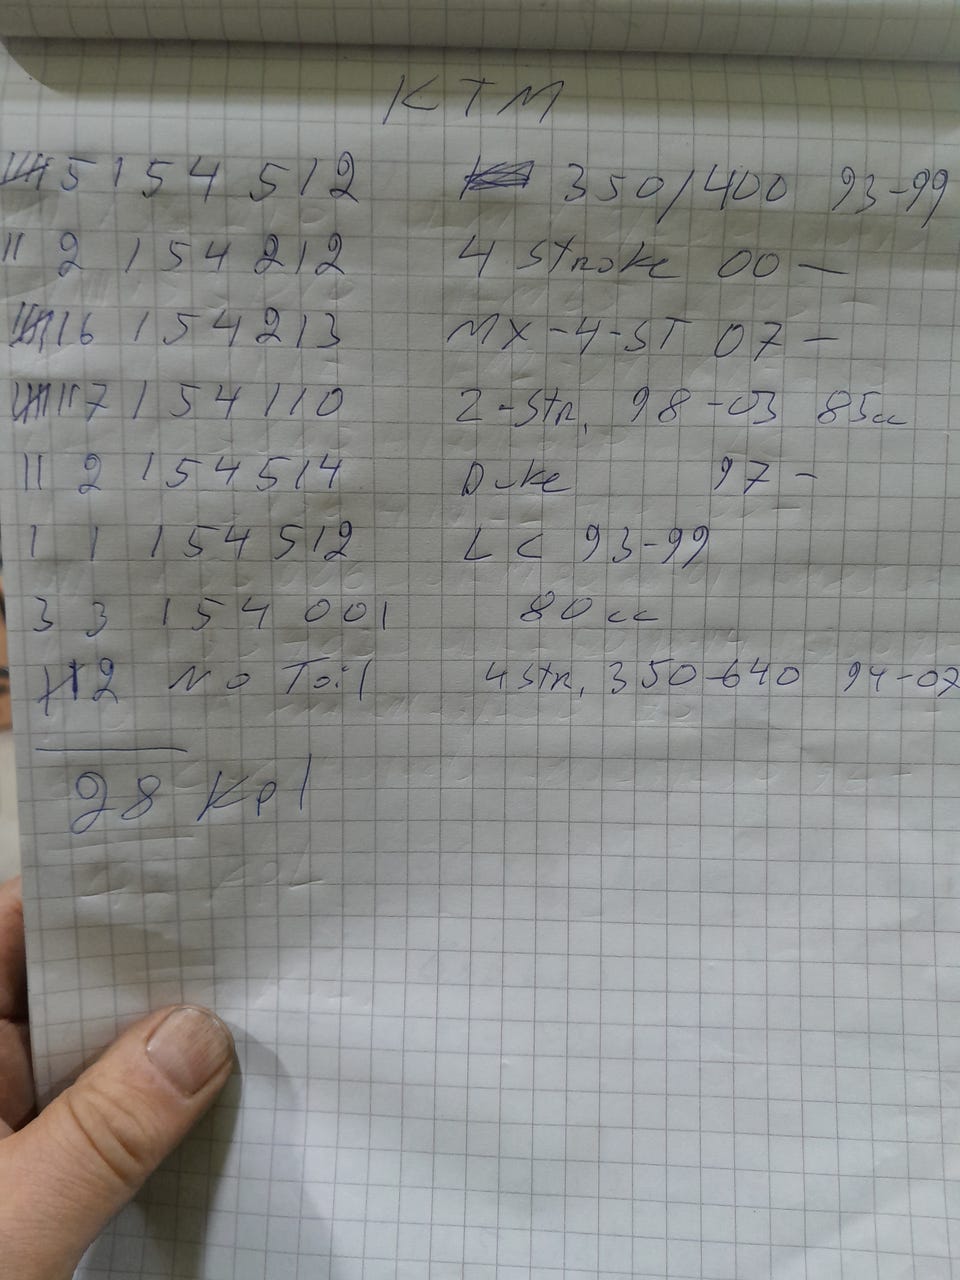 KTM
5 154 512 350/400 93-99
11 2 154 212 4 stroke 00 —
6 154 213 MX-4-ST 07 —
7 154 110 2-Str. 98-03 85cc
11 2 154 514 Duke 97 -
1 1 154 512 LC 93-99
3 3 154 001 80cc
2 No Toil 4 Str. 350-640 94-07
28 Kpl